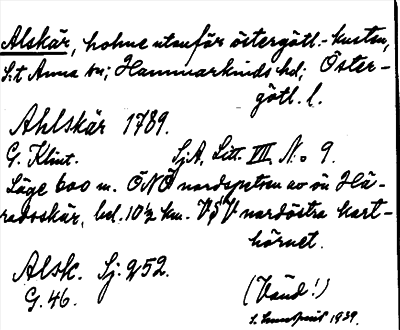 Alskär, holme utanför östergötl.-kusten,
S:t Anna sn; Hammarkinds hd; Öster-
götl. l.
Ahlskär 1789.
G. Klint. SjA. Litt. VIII N:o 9.
Läge 600 m. ÖNÖ nordspetsen av ön Hä-
radsskär, bel. 10½ km. VSV nordöstra kart-
hörnet.
Alsk. Sj. 252.
G. 46. (Vänd!)
1939.